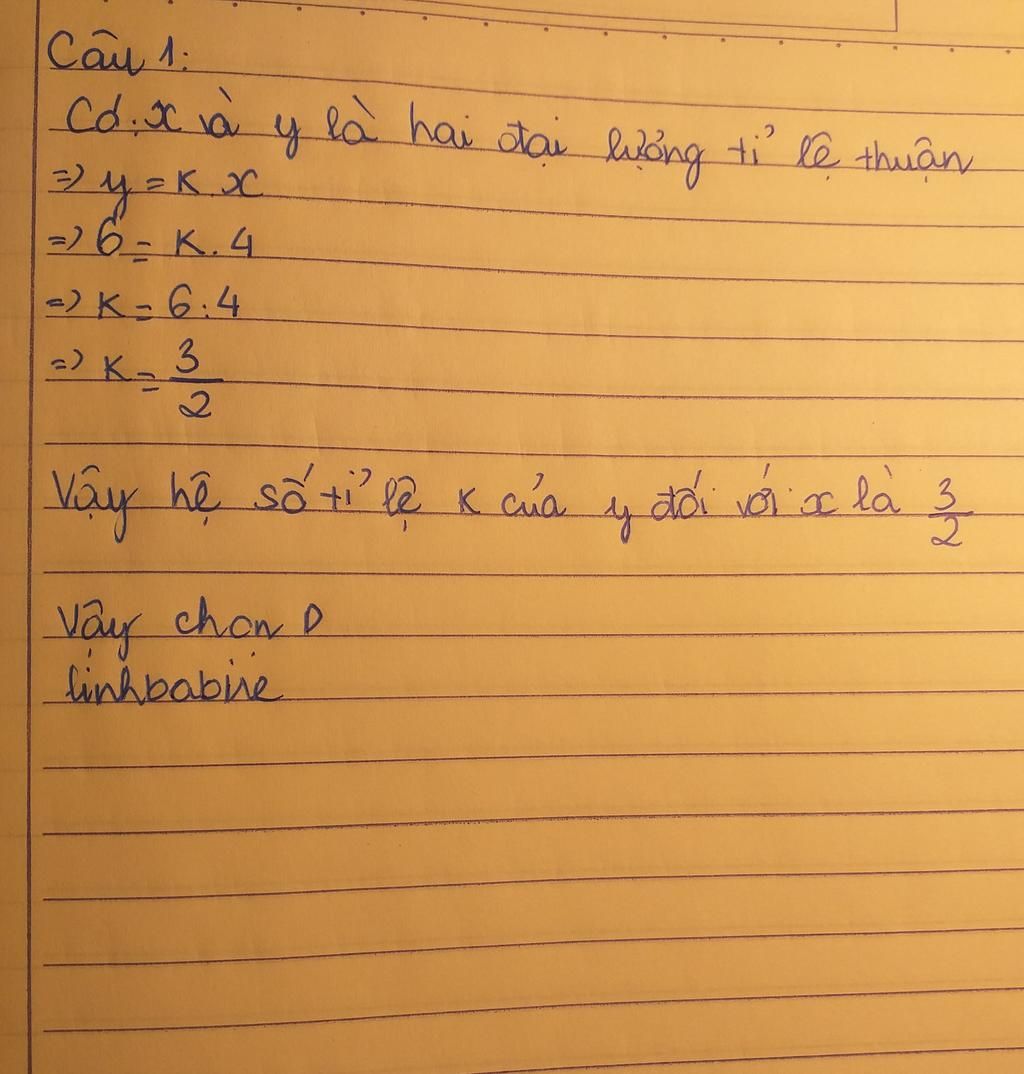 Câu 1:
Có: x và y là hai đại lượng tỉ lệ thuận
=> y = K.x
=> 6 = K.4
=> K = 6:4
=> K = 3/2
Vậy hệ số tỉ lệ K của y đối với x là 3/2
Vậy chọn D
linhbabire